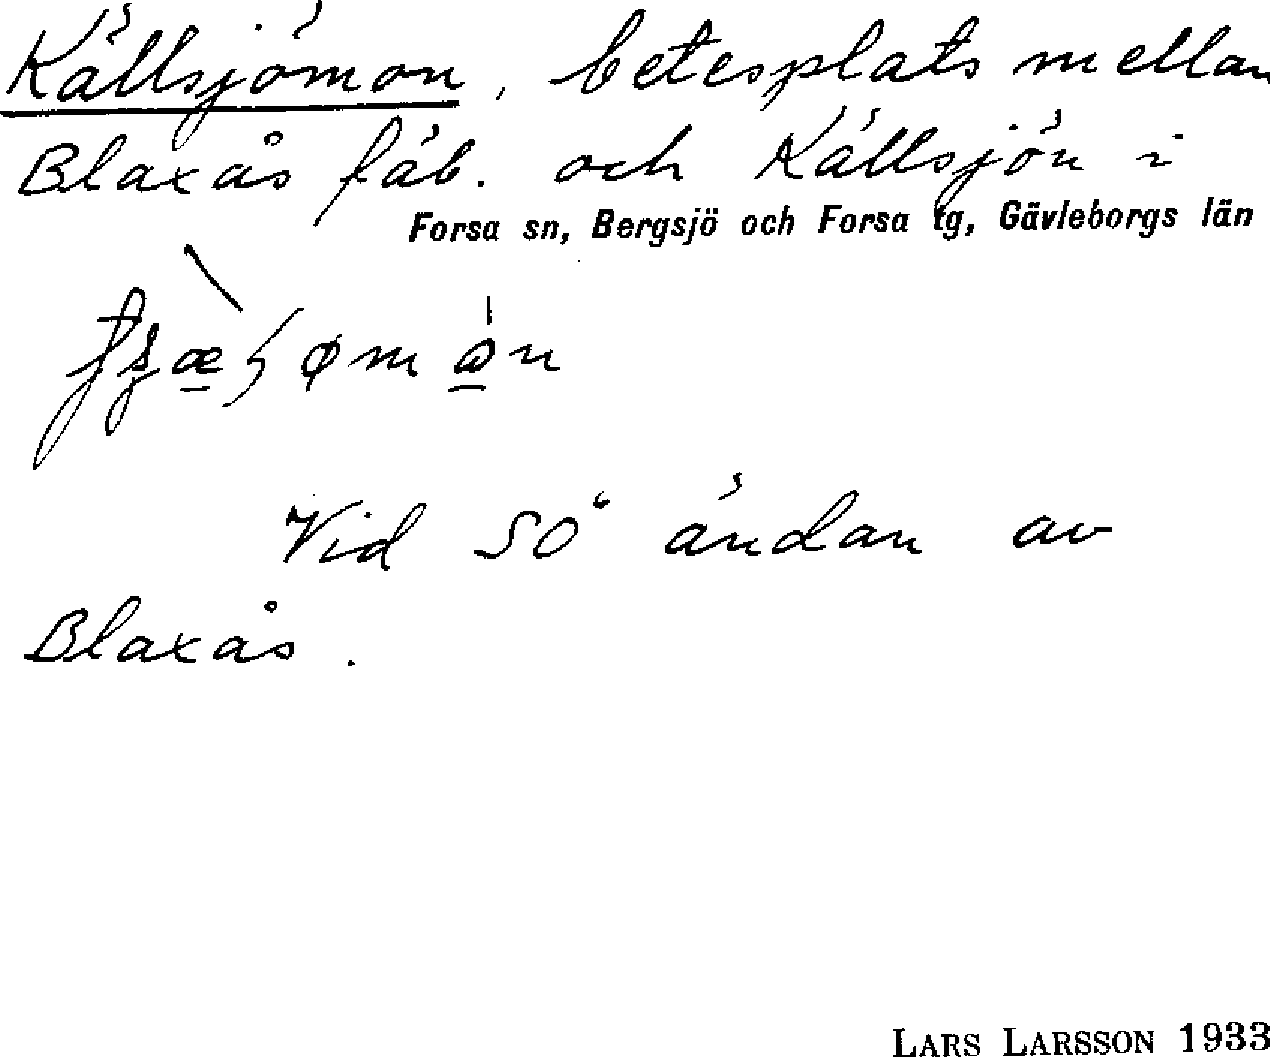 Källsjömon, betesplats mellan
Blaxås fäb. och Källsjön i
Forsa sn, Bergsjö och Forsa tg, Gävleborgs län
Vid SO ändan av
Blaxås.
LARS LARSSON 1933